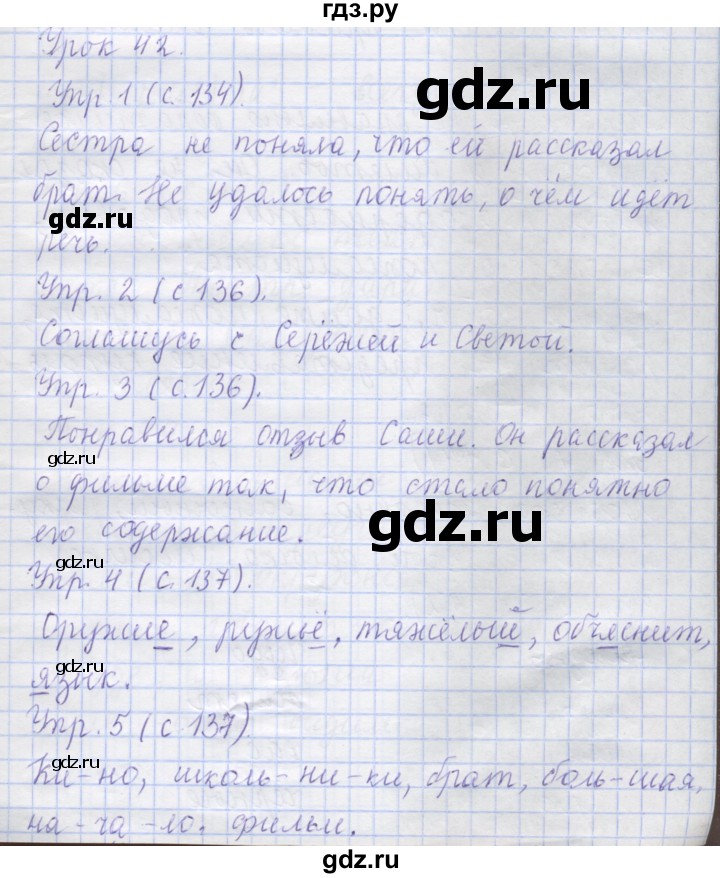 гдз.ру
Урок 42.
Упр. 1 (с. 134).
gdz.ru
Сестра не поняла, что ей рассказал
брат. Не удалось понять, о чём идёт
gdz.ru
речь.
Упр. 2 (с 136).
Соглашусь с Серёжей и Светой.
Упр. 3 (с. 136).
Понравился отзыв Саши. Он рассказал
gdz.ru
о фильме так, что стало понятно
gdz.ru
его содержание.
gdz.ru
Упр. 4 (с. 137).
Оружие, ружьё, тяжёлый, объяснит,
gdz.ru
язык.
Упр. 5 (с 137).
gdz.ru
Ки-но, школь-ни-ки, брат, боль-шая,
на-ча-ло. фильм.
gdz.ru